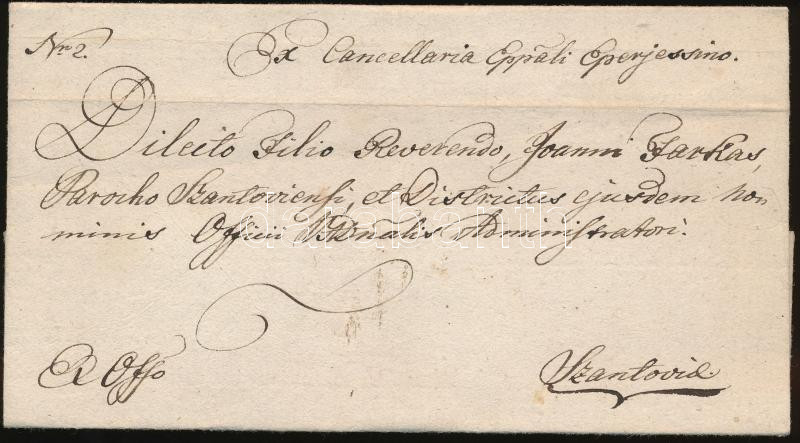 Nr 2.
Ex Cancellaria Eppali Eperjessino.
Dilecto Filio Reverendo, Joanni Farkas,
Parocho Szantoviensi, et Districtus ejusdem no-
minis Officii Admalis Administratori.
Ex Offo
Szantoviæ.
darabanth